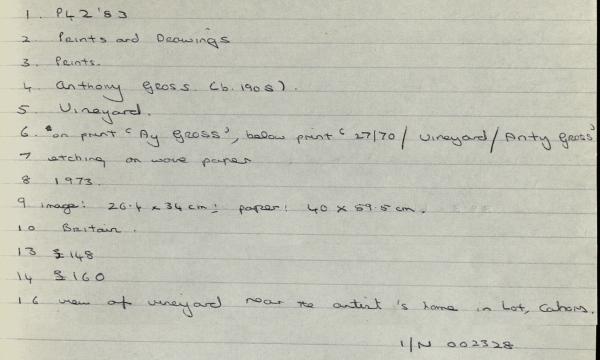 1. PL2'83
2 Prints and Drawings
3. Prints.
4. Anthony Gross. (b. 1905).
5 Vineyard.
6. on print 'Ay Gross', below print '27/70 / Vineyard / Anty Gross'
7 etching on wove paper
8 1973.
9 image: 26.4 x 34 cm; paper: 40 x 59.5 cm.
10 Britain.
13 £148
14 £160
16 view of vineyard near the artist's home in Lot, Cahors.
1/N 002328